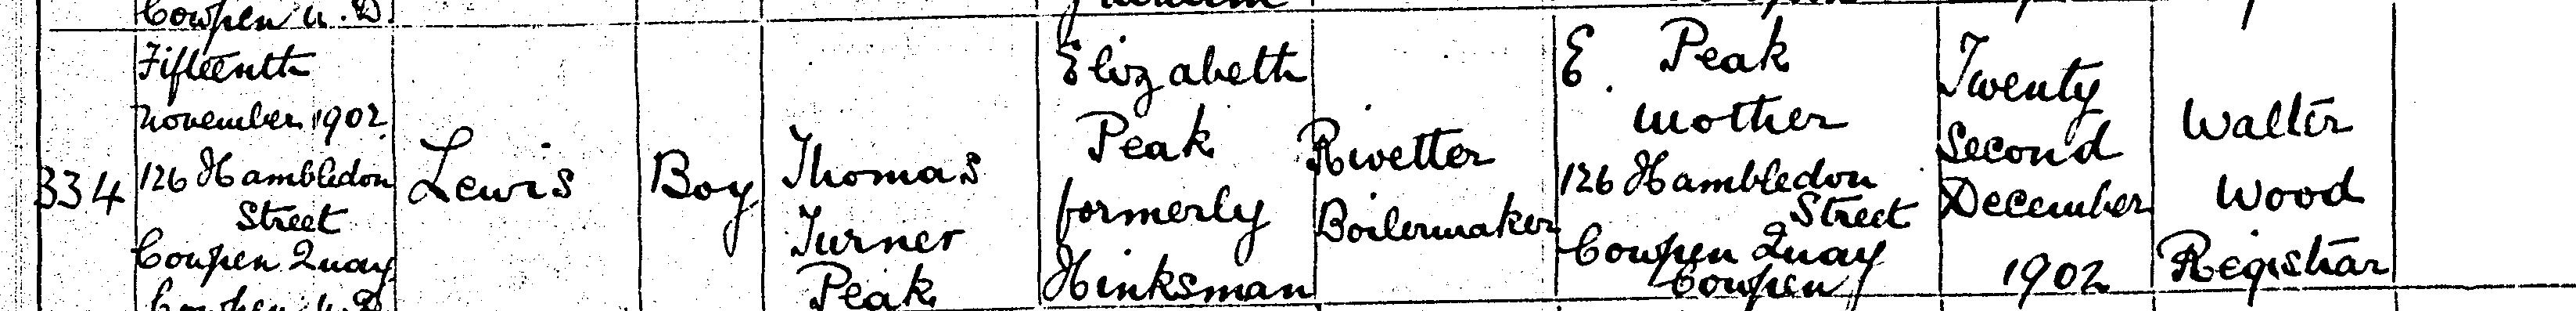 Cowpen U.D.
334
Fifteenth
November 1902
126 Hambledon
Street
Cowpen Quay
Cowpen U.D.
Lewis
Boy
Thomas
Turner
Peak
Elizabeth
Peak
formerly
Hinksman
Rivetter
Boilermaker
E. Peak
mother
126 Hambledon
Street
Cowpen Quay
Cowpen
Twenty
Second
December
1902
Walter
Wood
Registrar